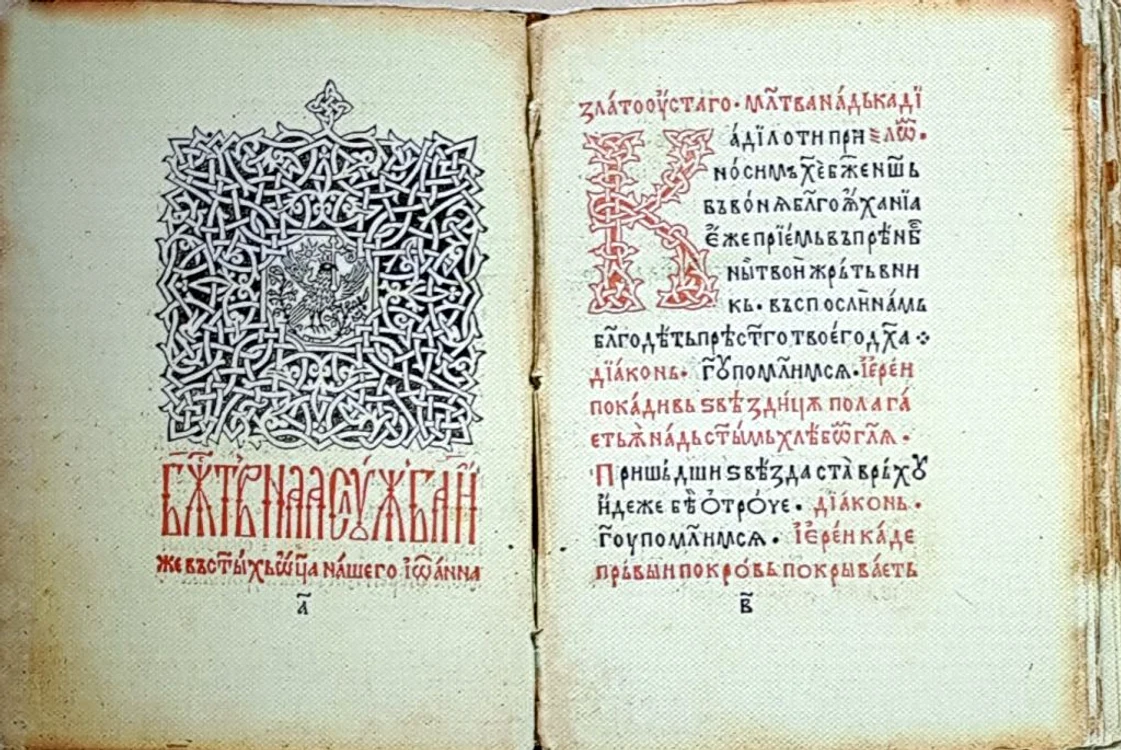 Бж҃тв҃рнаа слꙋ́жба и҆́
же въ ст҃ы́хь ѿц҃а на́шего і҆ѡа́нна
а҃
Злато́ꙋстаго · мл҃тва на́дь кади́
ка́дїло ти при ло̑м ·
но́симь хе҃ бж҃е нш҃ь
въ во́нѧ бл҃гоѹ҆ха́нїа
е҆́же прїе́мь въ прѣнб҃
ны́и твои̏ жрь́тьвни
кь · въспосли̏ на́мь
бл҃года́ть прѣст҃го твоего̀ дх҃а
дїа́конь · гоу҃ помл҃имсѧ · і҆ере́и
покади́вь ѕвѣзди́цꙋ полага́
еть ю҆̀ на́дь ст҃ы́мь хлѣ́бѡ҃ гл҃ѧ ·
Прише́дши ѕвѣзда̀ ста̀ врьхꙋ̀
и҆де́же бѣ̀ ѻ҆тро́че · дїа́конь ·
гоу҃ помл҃имсѧ · і҆ере́и ка́де
прь́вьіи покро́вь покрыва́еть
в҃